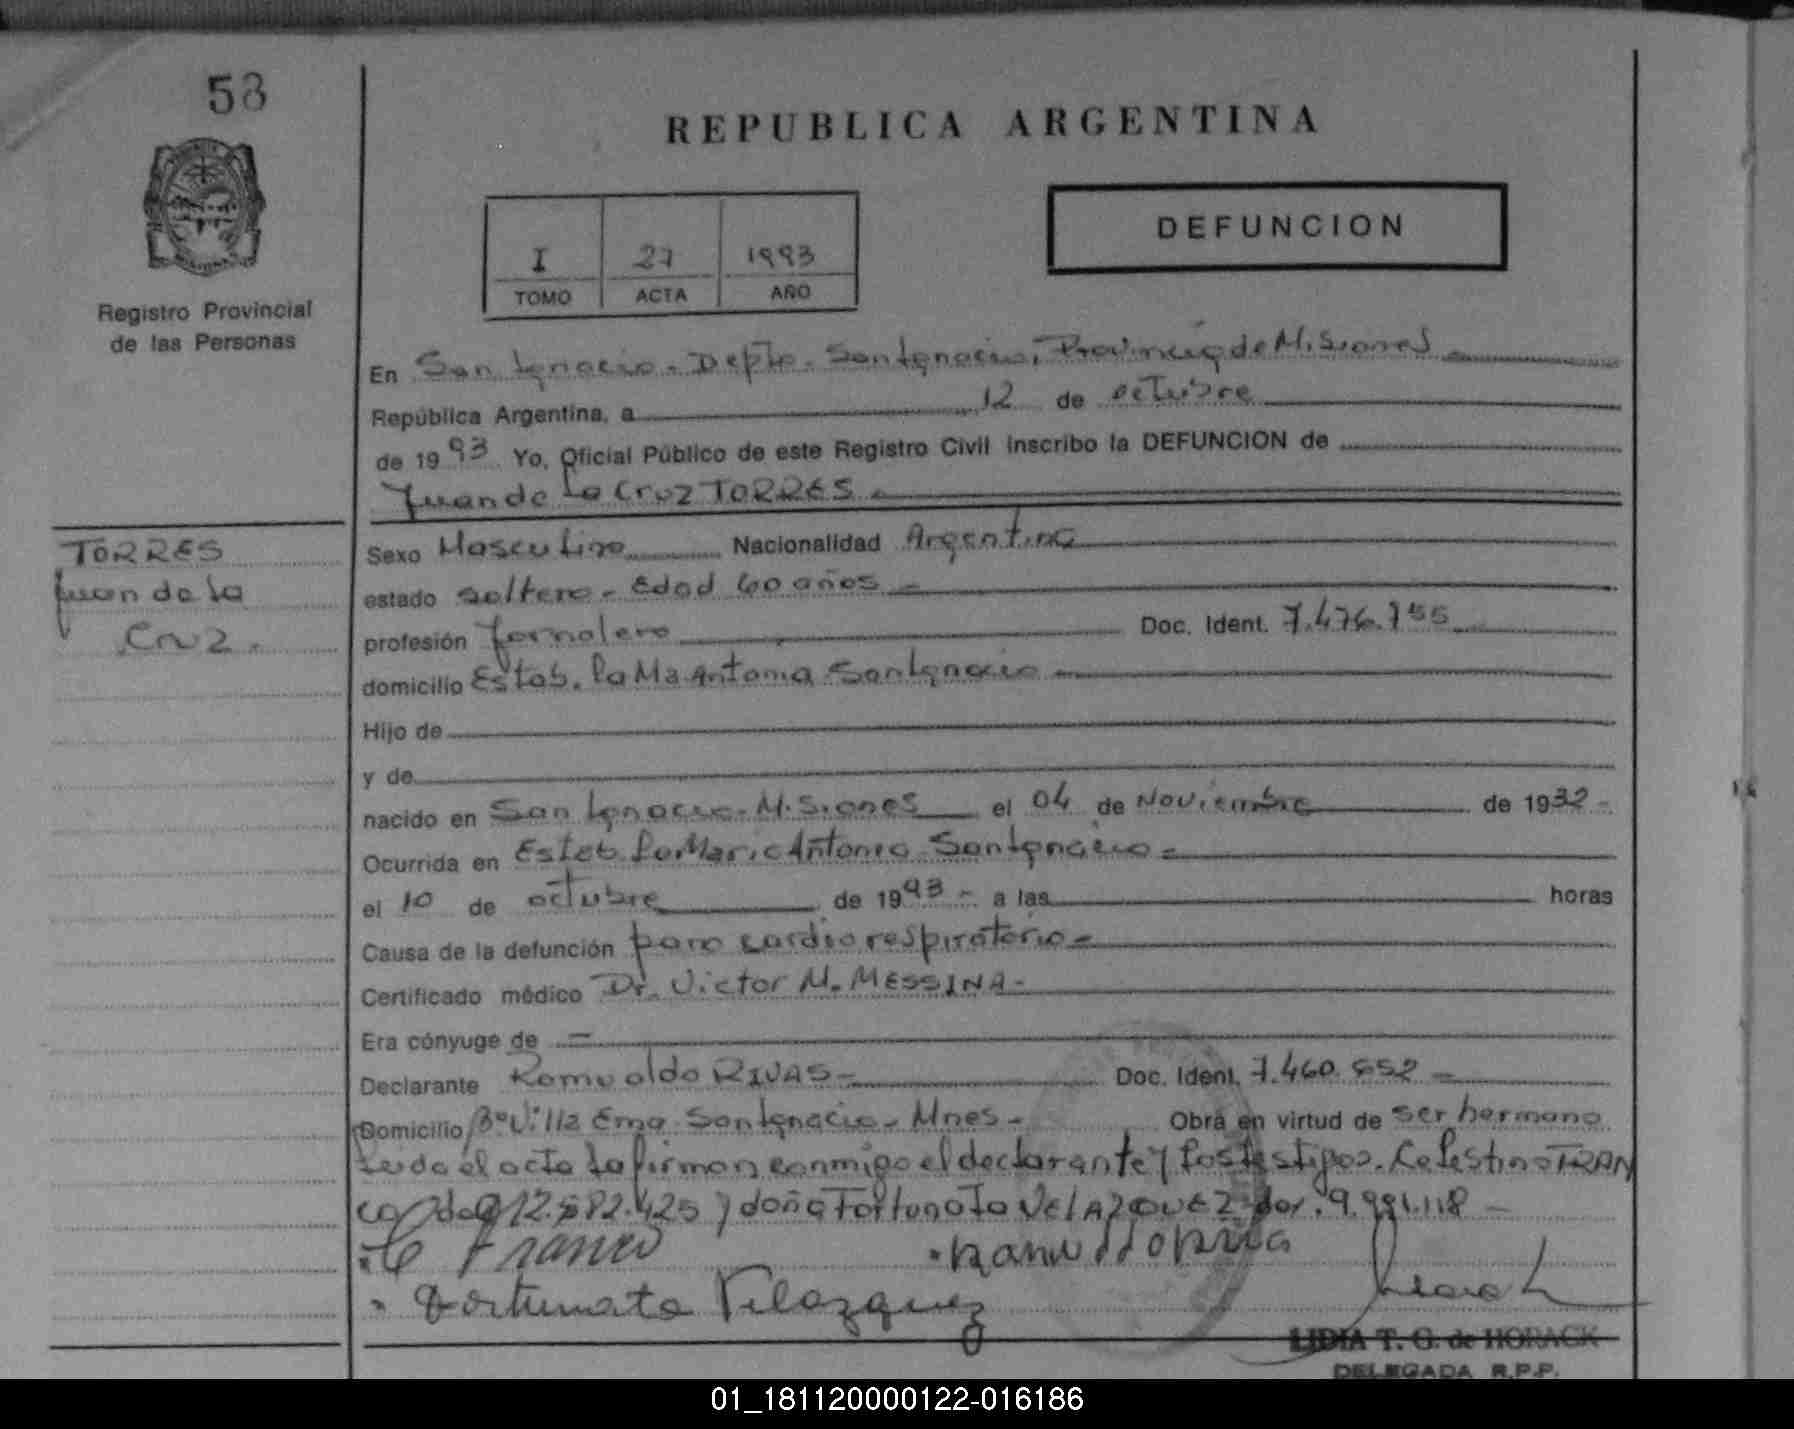 53
REPUBLICA ARGENTINA
DEFUNCION
I 27 1993
TOMO ACTA AÑO
Registro Provincial
de las Personas
En San Ignacio - Depto. San Ignacio, Provincia de Misiones
República Argentina, a 12 de octubre
de 1993 Yo, Oficial Público de este Registro Civil inscribo la DEFUNCION de
Juan de la Cruz TORRES
TORRES
Juan de la
Cruz.
Sexo Masculino Nacionalidad Argentina
estado soltero - Edad 60 años -
profesión Jornalero Doc. Ident. 7.476.755
domicilio Estab. La Ma Antonia San Ignacio
Hijo de
y de
nacido en San Ignacio - Misiones el 04 de Noviembre de 1932 -
Ocurrida en Estab. La Maria Antonia San Ignacio -
el 10 de octubre de 1993 - a las horas
Causa de la defunción paro cardio respiratorio -
Certificado médico Dr. Victor M. MESSINA -
Era cónyuge de -
Declarante Romualdo RIVAS - Doc. Ident. 7.460.652 -
Domicilio Bº Villa Ema San Ignacio - Mnes - Obra en virtud de ser hermano
Leida el acta la firman conmigo el declarante y los testigos. Celestino FRAN
co y doña Fortunata VELAZQUEZ 9.991.118 -
C Franco
Fortunata Velazquez
LIDIA T. G. de HORACK
DELEGADA R.P.P.
01_181120000122-016186